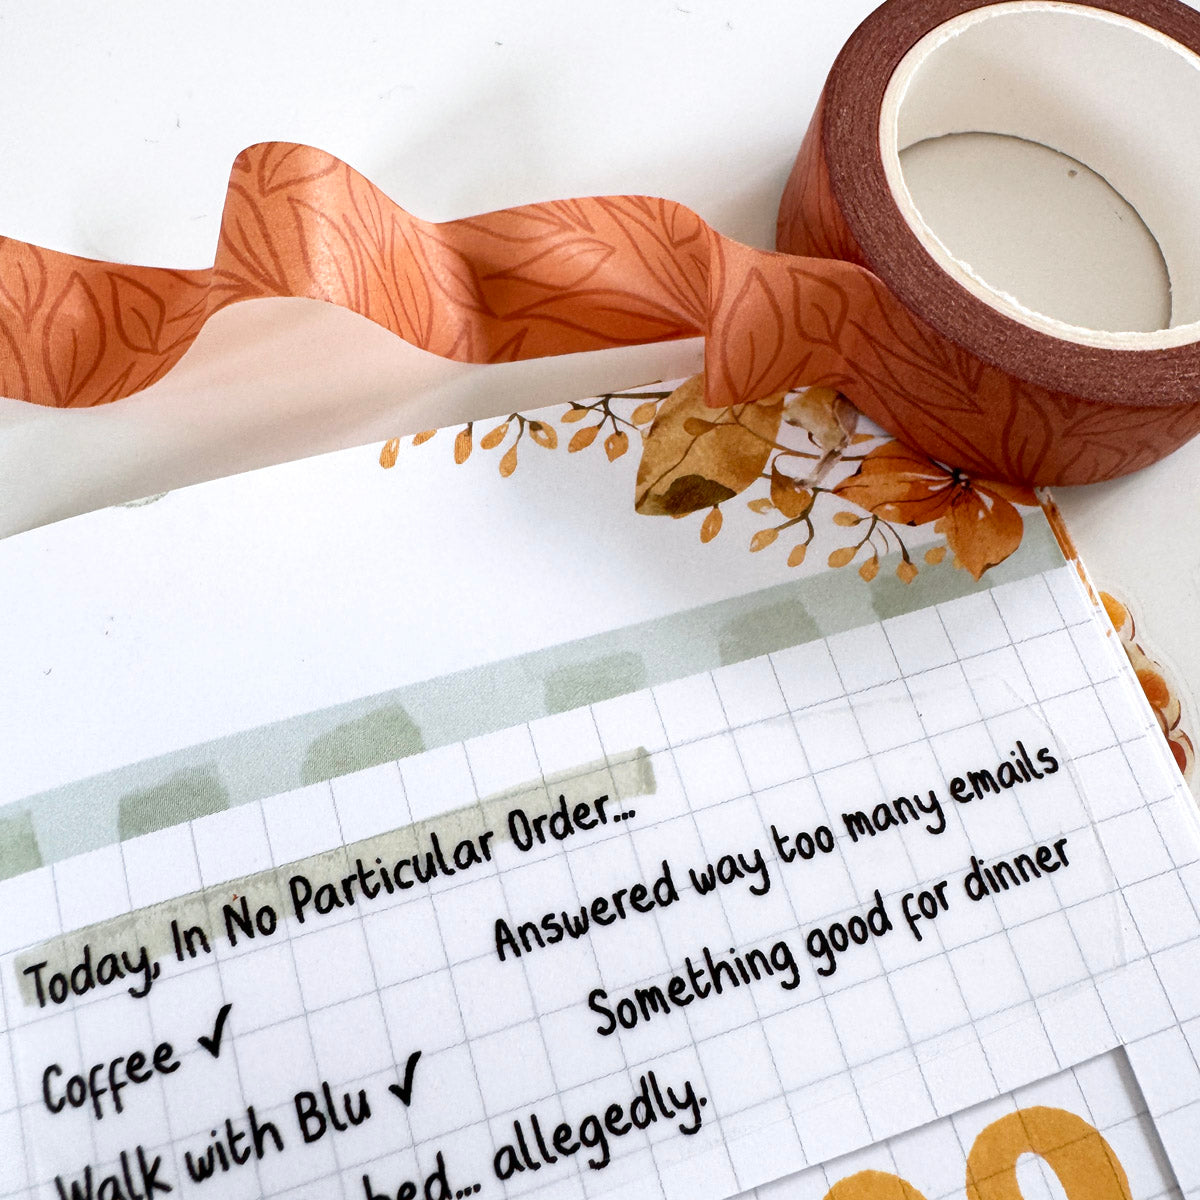 Today, In No Particular Order...
Coffee ✓
Walk with Blu ✓
bed... allegedly.
Answered way too many emails
Something good for dinner